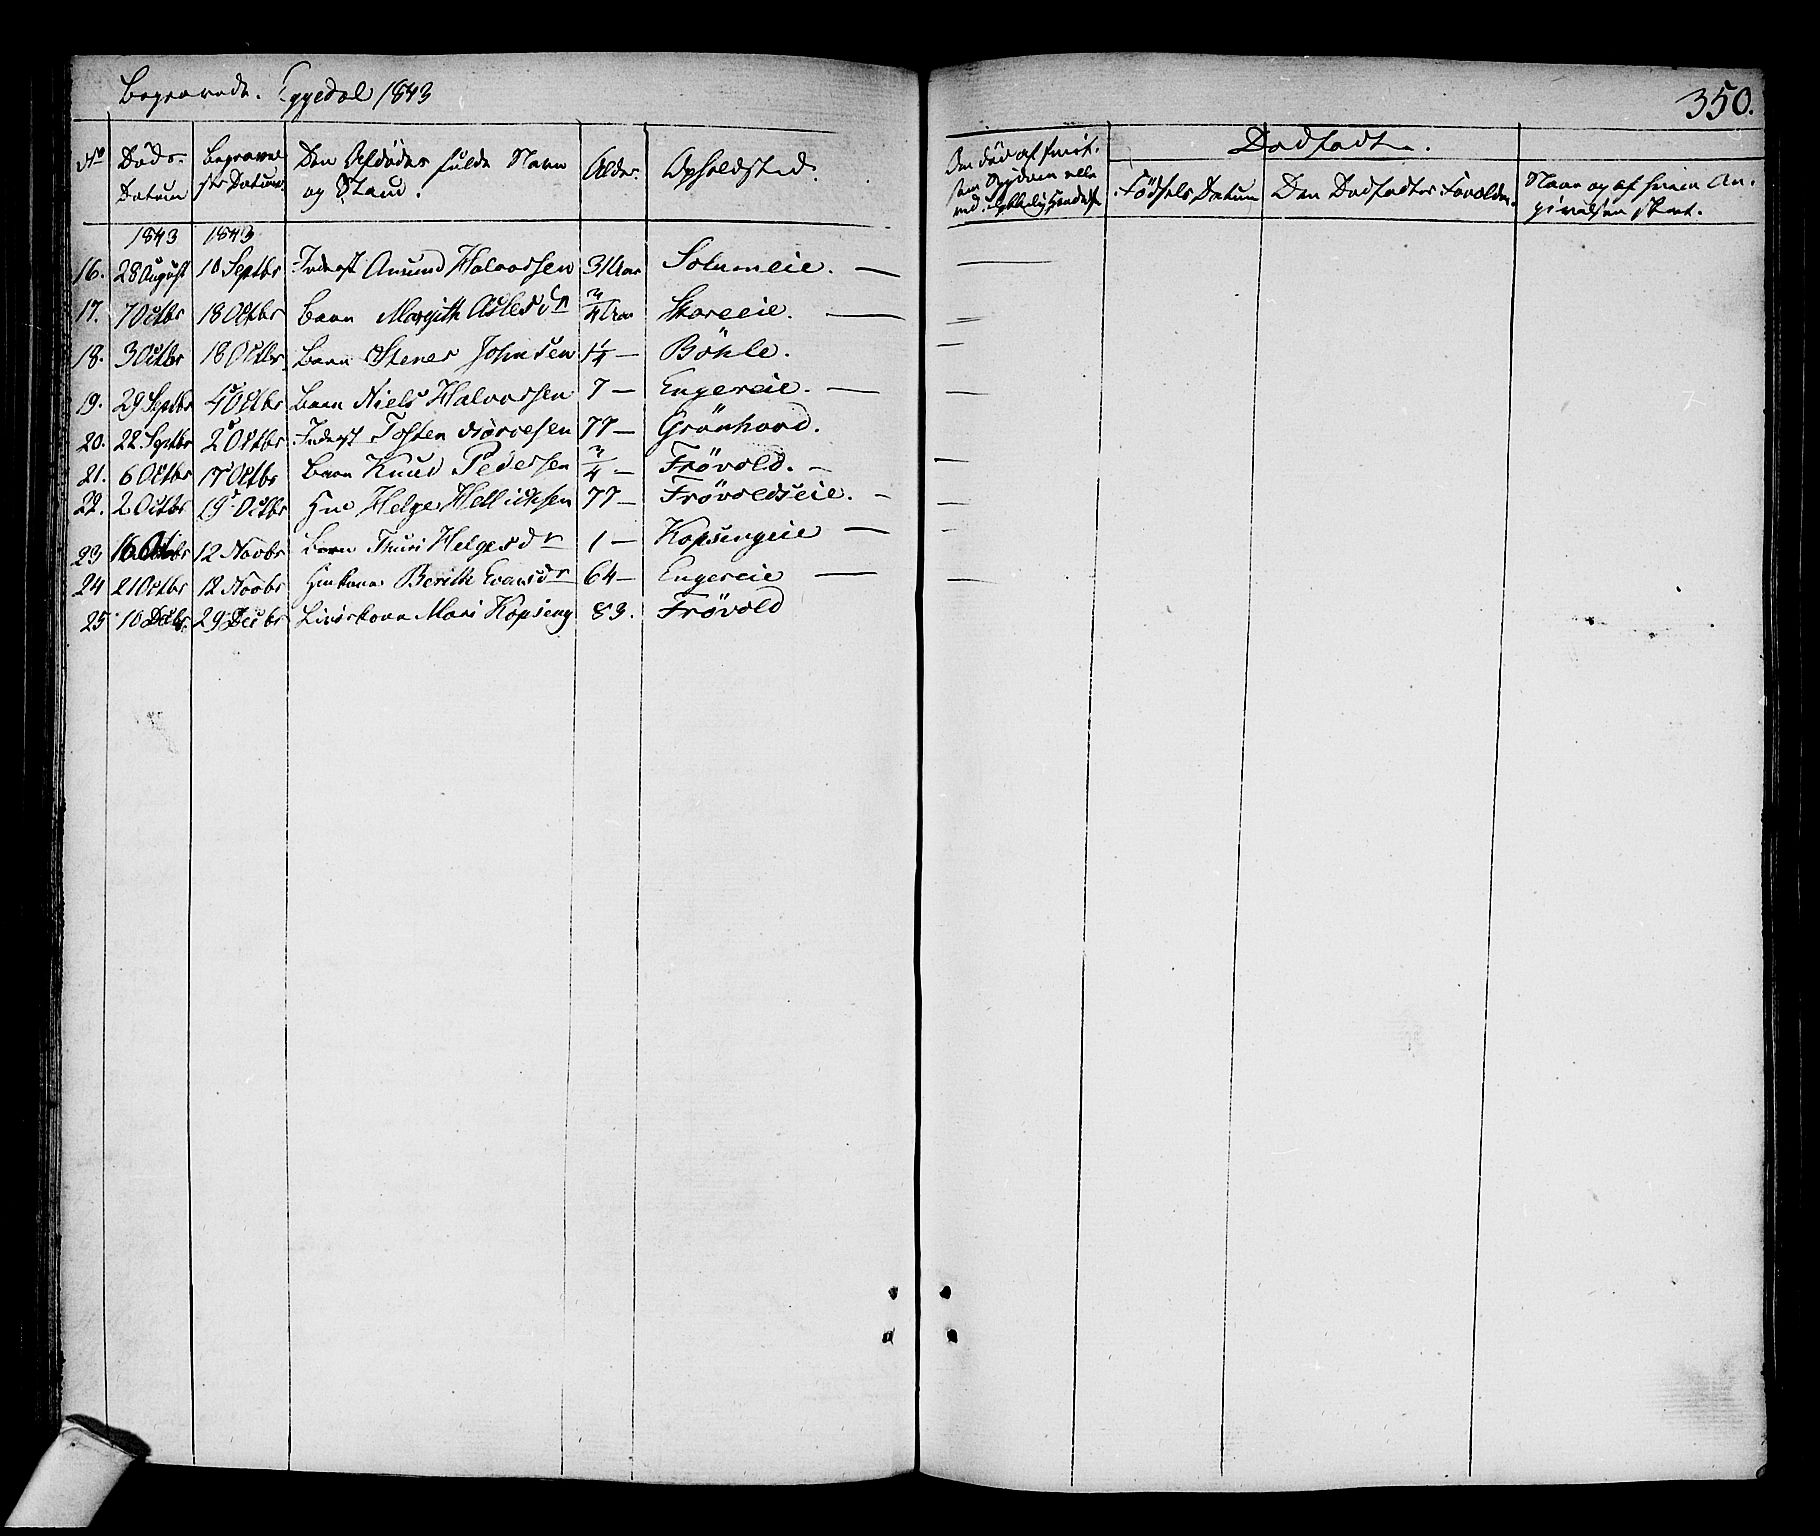 Begravede. Eggedal 1843
350.
No Døds- Datum Begravel sts Datum Den Afdødes fulde Navn og Stand. Alder. Opholdsted.
Dødfødte.
Fødsels Datum Den Dødfødtes Forældre. Navn og af hvem An- givelsen skeet.
1843 1843
16. 28 August 10 Septbr Inderst Amund Halvorsen 31 Aar Solumeie. —
17. 7 Octbr 18 Octbr Barn Margith Asles Dr 3/4 Aar Skareeie. —
18. 3 Octbr 18 Octbr. Barn Stener Johnsen 1/4 — Böhle.
19. 29 Septbr 4 Octbr Barn Niels Halvorsen 7 — Engereie. —
20. 22 Septbr 2 Octbr Inderst Tosten 77 — Grönhovd.
21. 6 Octbr 17 Octbr Barn Knud Pedersen 3/4 — Frövold. —
22. 2 Octbr 19 Octbr Helge Hellichsen 77 — Frövoldseie. —
23 16 12 Novbr Barn Thuri Helgesdr 1 — Kopsengeie —
24 21 Octbr 12 Novbr Berith Evensdr 64 — Engereie —
25 10 Decbr. 29 Decbr Mari Kopseng 83. Frövold